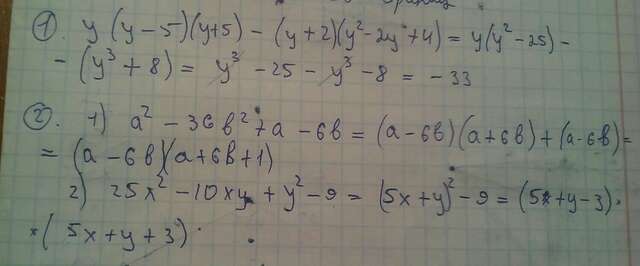 1. y (y-5)(y+5) - (y+2)(y²-2y+4) = y(y²-25) -
- (y³+8) = y³ - 25 - y³ - 8 = - 33
2. 1) a² - 36b² + a - 6b = (a-6b)(a+6b) + (a-6b) =
= (a-6b)(a+6b+1)
2) 25x² - 10xy + y² - 9 = (5x+y)² - 9 = (5x+y-3) ·
× (5x+y+3) ·